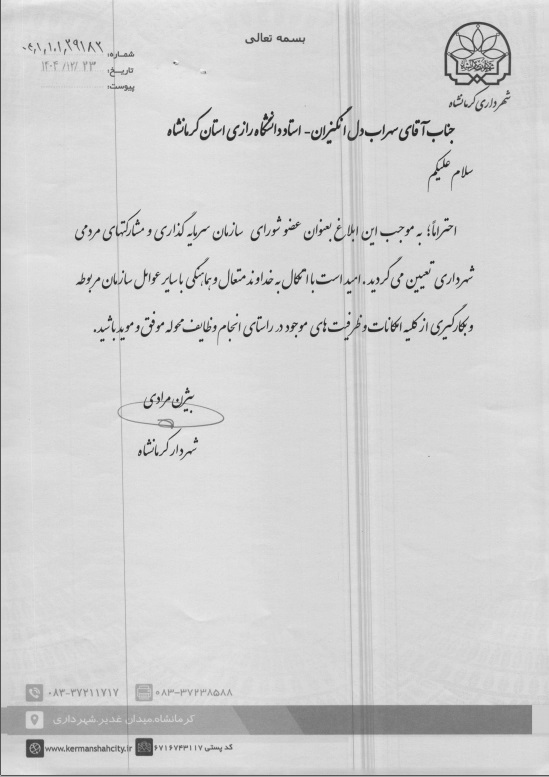 بسمه تعالی
شماره: ۰۴,۱,۱۰۱,۲۹۱۸۲
تاریخ: ۱۴۰۴/۱۲/۲۳
پیوست:
شهرداری کرمانشاه
جناب آقای سهراب دل انگیزان- استاد دانشگاه رازی استان کرمانشاه
سلام علیکم
احتراماً؛ به موجب این ابلاغ بعنوان عضو شورای سازمان سرمایه گذاری و مشارکتهای مردمی
شهرداری تعیین می گردید. امید است با اتکال به خداوند متعال و هماهنگی با سایر عوامل سازمان مربوطه
و بکارگیری از کلیه امکانات و ظرفیت های موجود در راستای انجام وظایف محوله موفق و موید باشید.
بیژن مرادی
شهردار کرمانشاه
۰۸۳-۳۷۲۱۱۷۱۷ ۰۸۳-۳۷۲۳۸۵۸۸
کرمانشاه.میدان غدیر.شهرداری
www.kermanshahcity.ir کد پستی ۶۷۱۶۷۴۳۱۱۷